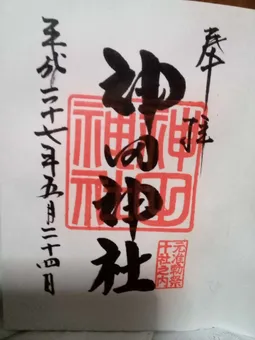 奉拝
神田神社
平成二十七年五月二十四日
神田神社
元准勅祭十社之内